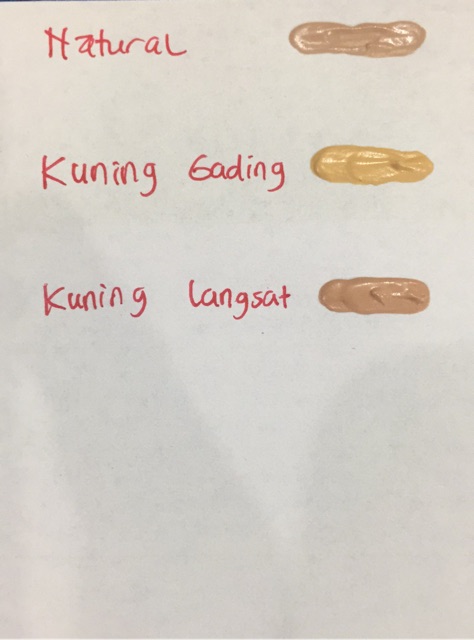 Natural
Kuning Gading
Kuning Langsat